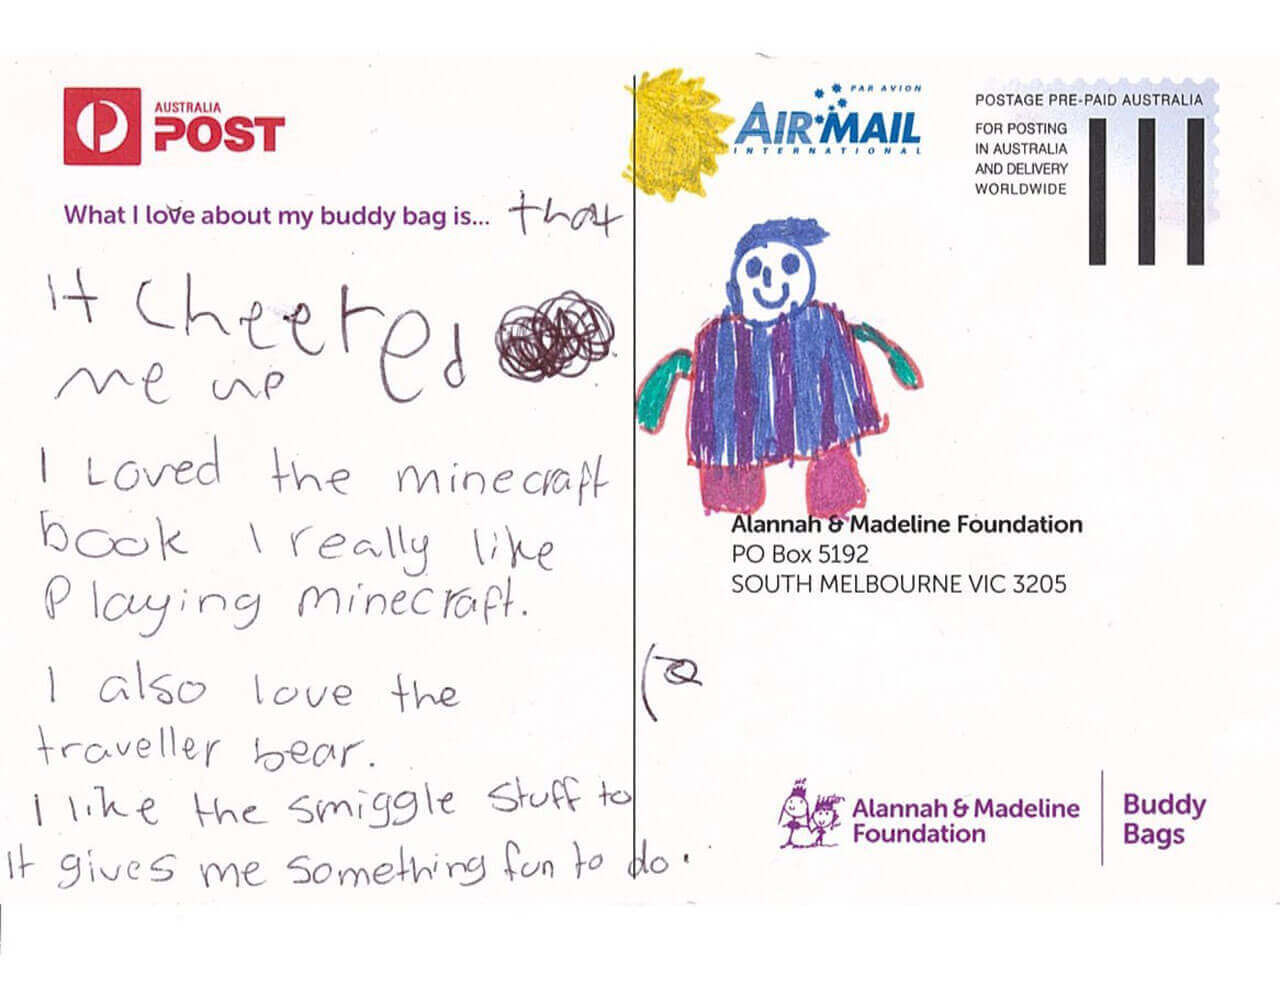 AUSTRALIA
POST
What I love about my buddy bag is... that
It cheered
me up
I Loved the minecraft
book I really like
Playing minecraft.
I also love the
traveller bear.
I like the smiggle stuff to
It gives me something fun to do.
PAR AVION
AIR MAIL
INTERNATIONAL
POSTAGE PRE-PAID AUSTRALIA
FOR POSTING
IN AUSTRALIA
AND DELIVERY
WORLDWIDE
Alannah & Madeline Foundation
PO Box 5192
SOUTH MELBOURNE VIC 3205
Alannah & Madeline
Foundation
Buddy
Bags